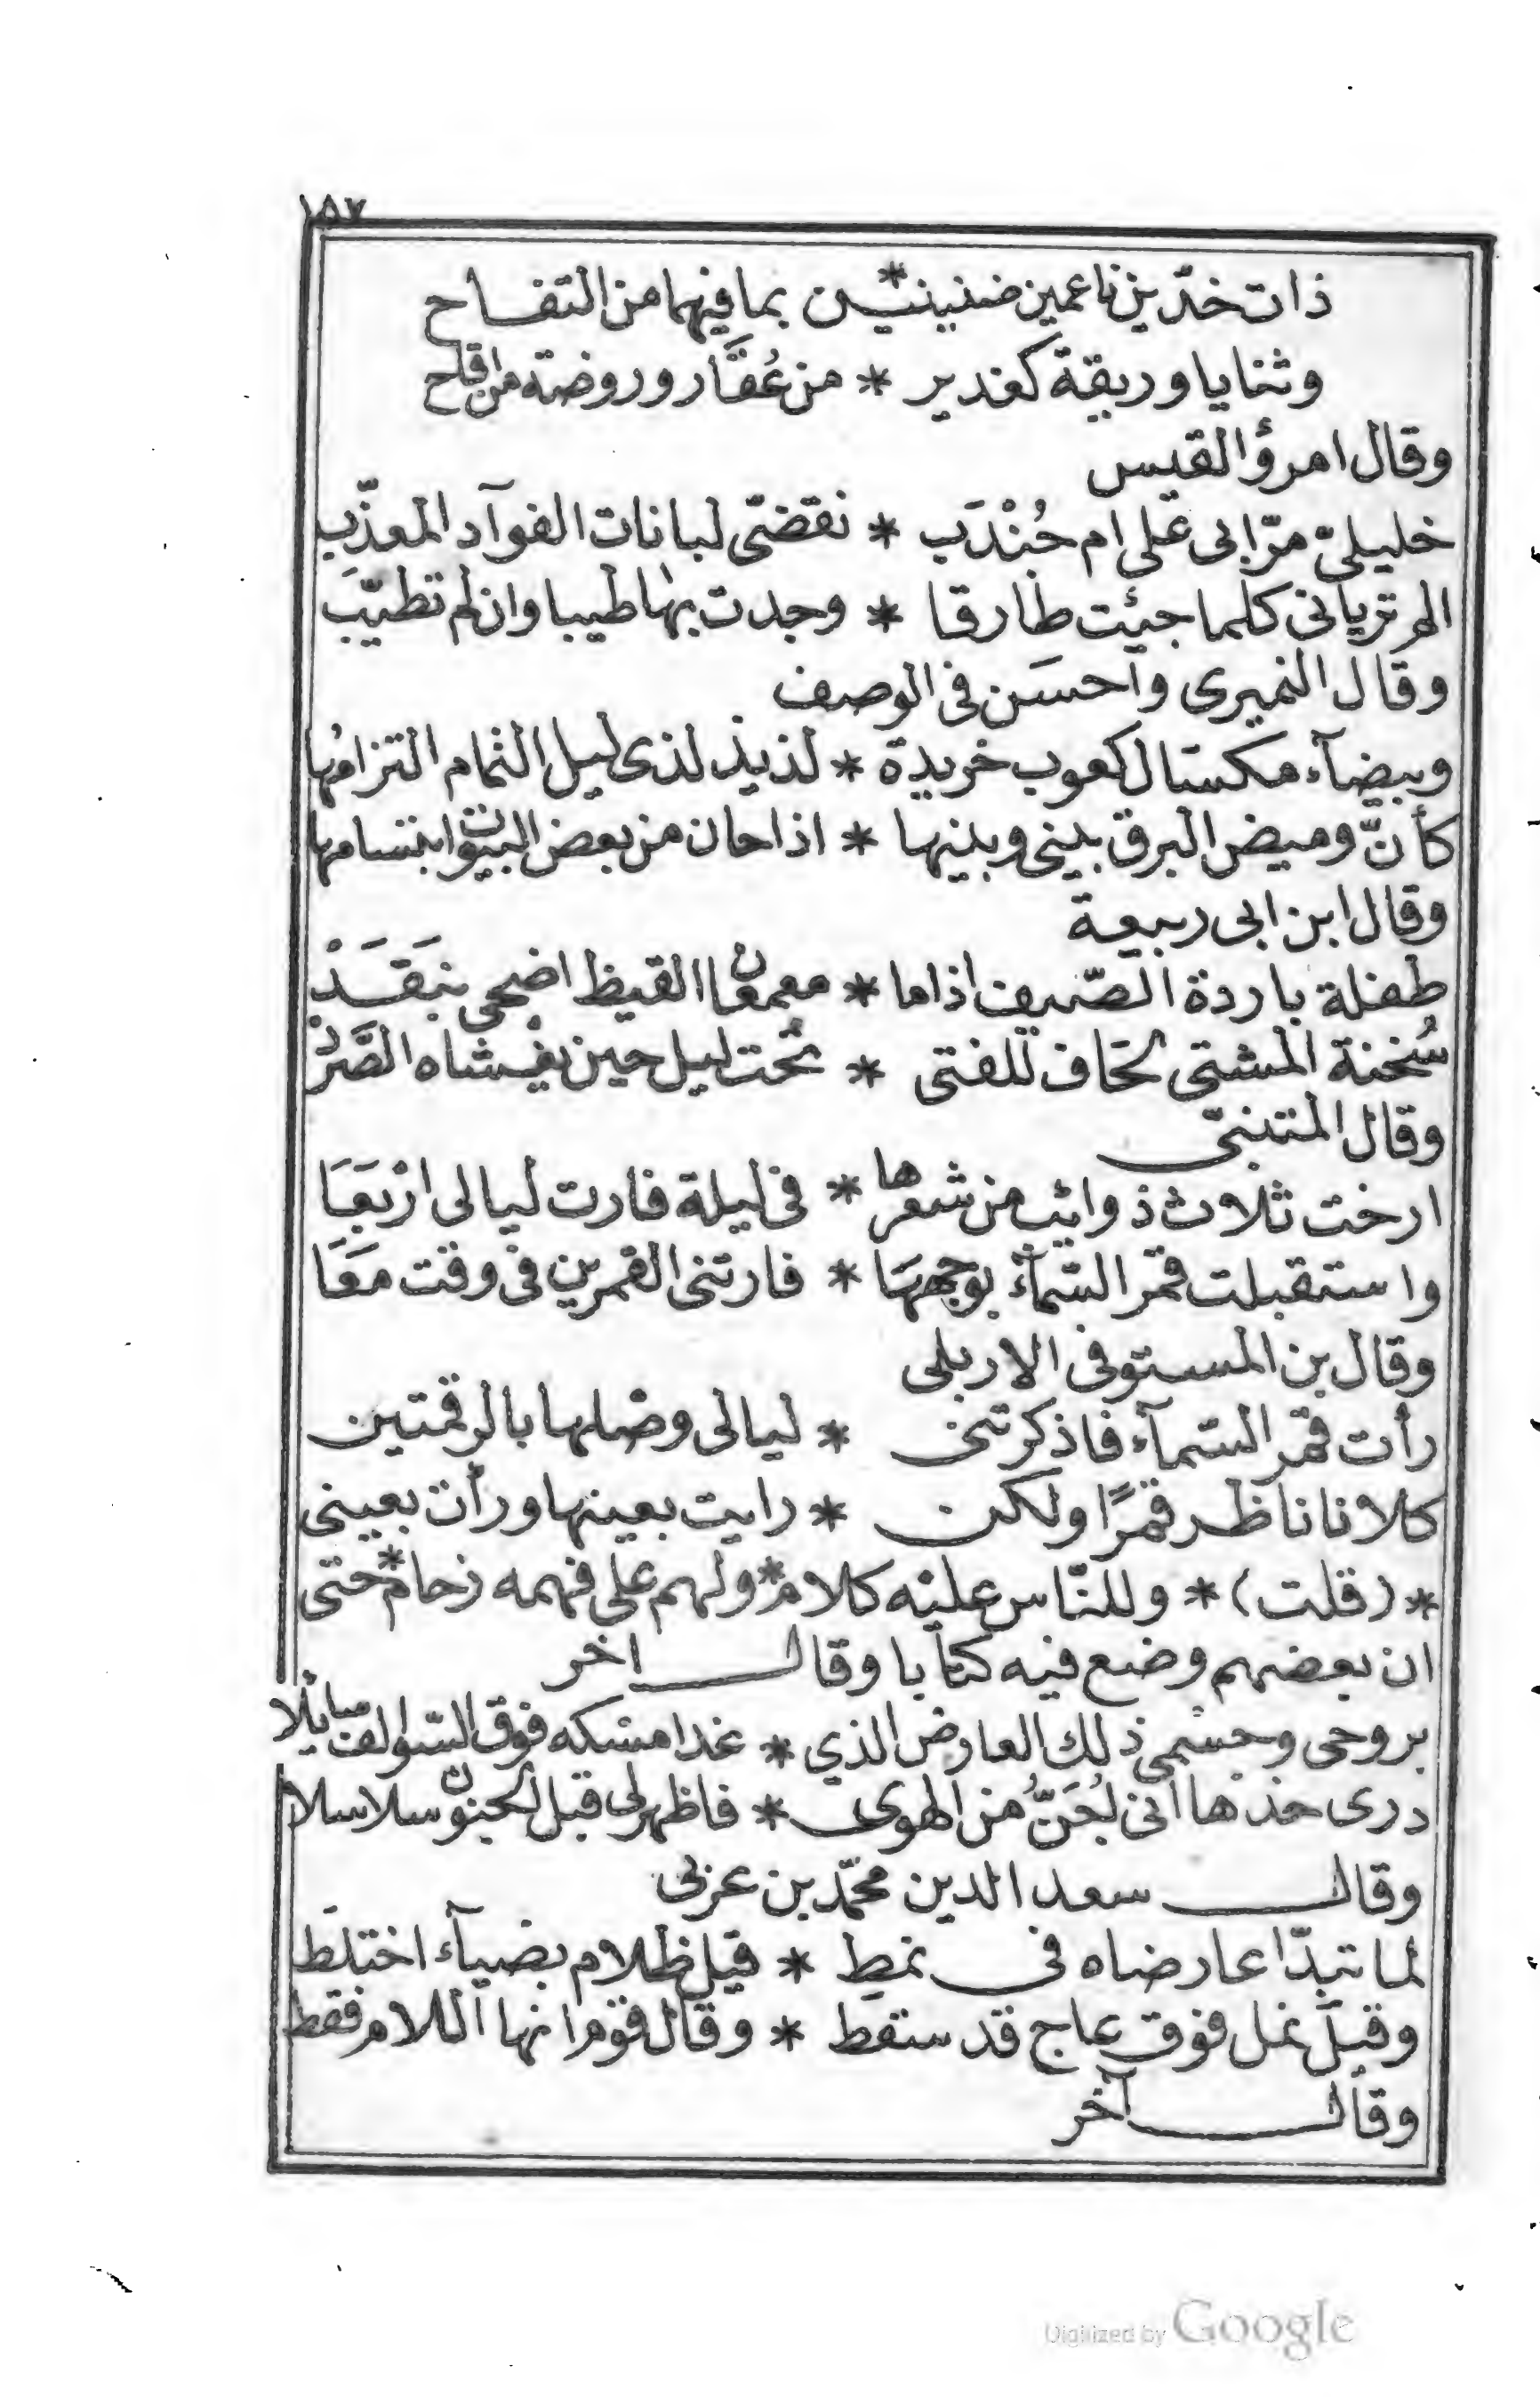 ١٥٧
ذات خدّين ناعمين ضنينين * بما فيهما من التفاح
وثنايا وريقة كغدير * من عُقَّار وروضة من اقاح
وقال امرؤ القيس
خليليّ مرّا بى على ام جُنْدَب * نقضّى لبانات الفوآد المعذّب
الم تريانى كلما جيئت طارقا * وجدت بها طيبا وان لم تطيّب
وقال النميرى واحسَن فى الوصف
وبيضآء مكسال كعوب خريدة * لذيذ لذى ليل التمام التزامُها
كأنّ وميض البرق بينى وبينها * اذا حان من بعض البيوت ابتسامها
وقال ابن ابى ربيعة
طفلة باردة الصّيف اذا ما * معمعان القيظ اضحى يَتَقَدْ
سُخنة المشتى لحاف للفتى * تحت ليل حين يغشاه الصَّرَدْ
وقال المتنبّى
ارخت ثلاث ذوايب من شعرها * فى ليلة فارت ليالى ارْبَعَا
واستقبلت قمر السّمآء بوجهها * فارتنى القمرين فى وقت مَعَا
وقال بن المستوفى الاربلى
رأت قمر السّمآء فاذكرتنى * ليالى وصْلها بالرقمتين
كلانا ناظر قمرًا ولكن * رايت بعينها ورأت بعينى
* (قلت) * وللنّاس عليْه كلام * ولهم على فهمه زحام * حتى
ان بعضهم وضع فيه كتابا وقال اخر
بروحى وجسْمى ذلك العارض الذي * غدا مسْكه فوق السّوالف سايْلا
درى خدّها انى اُجَنُّ من الهوى * فاظهر لى قبل الجنون سلاسلا
وقال سعد الدين محمّد بن عربى
لما تبدّا عارضاه فى نمط * قيل ظلام بضيآء اختلط
وقيل نمل فوق عاج قد سقط * وقال قوم انها اللام فقط
وقال آخر
Digitized by Google